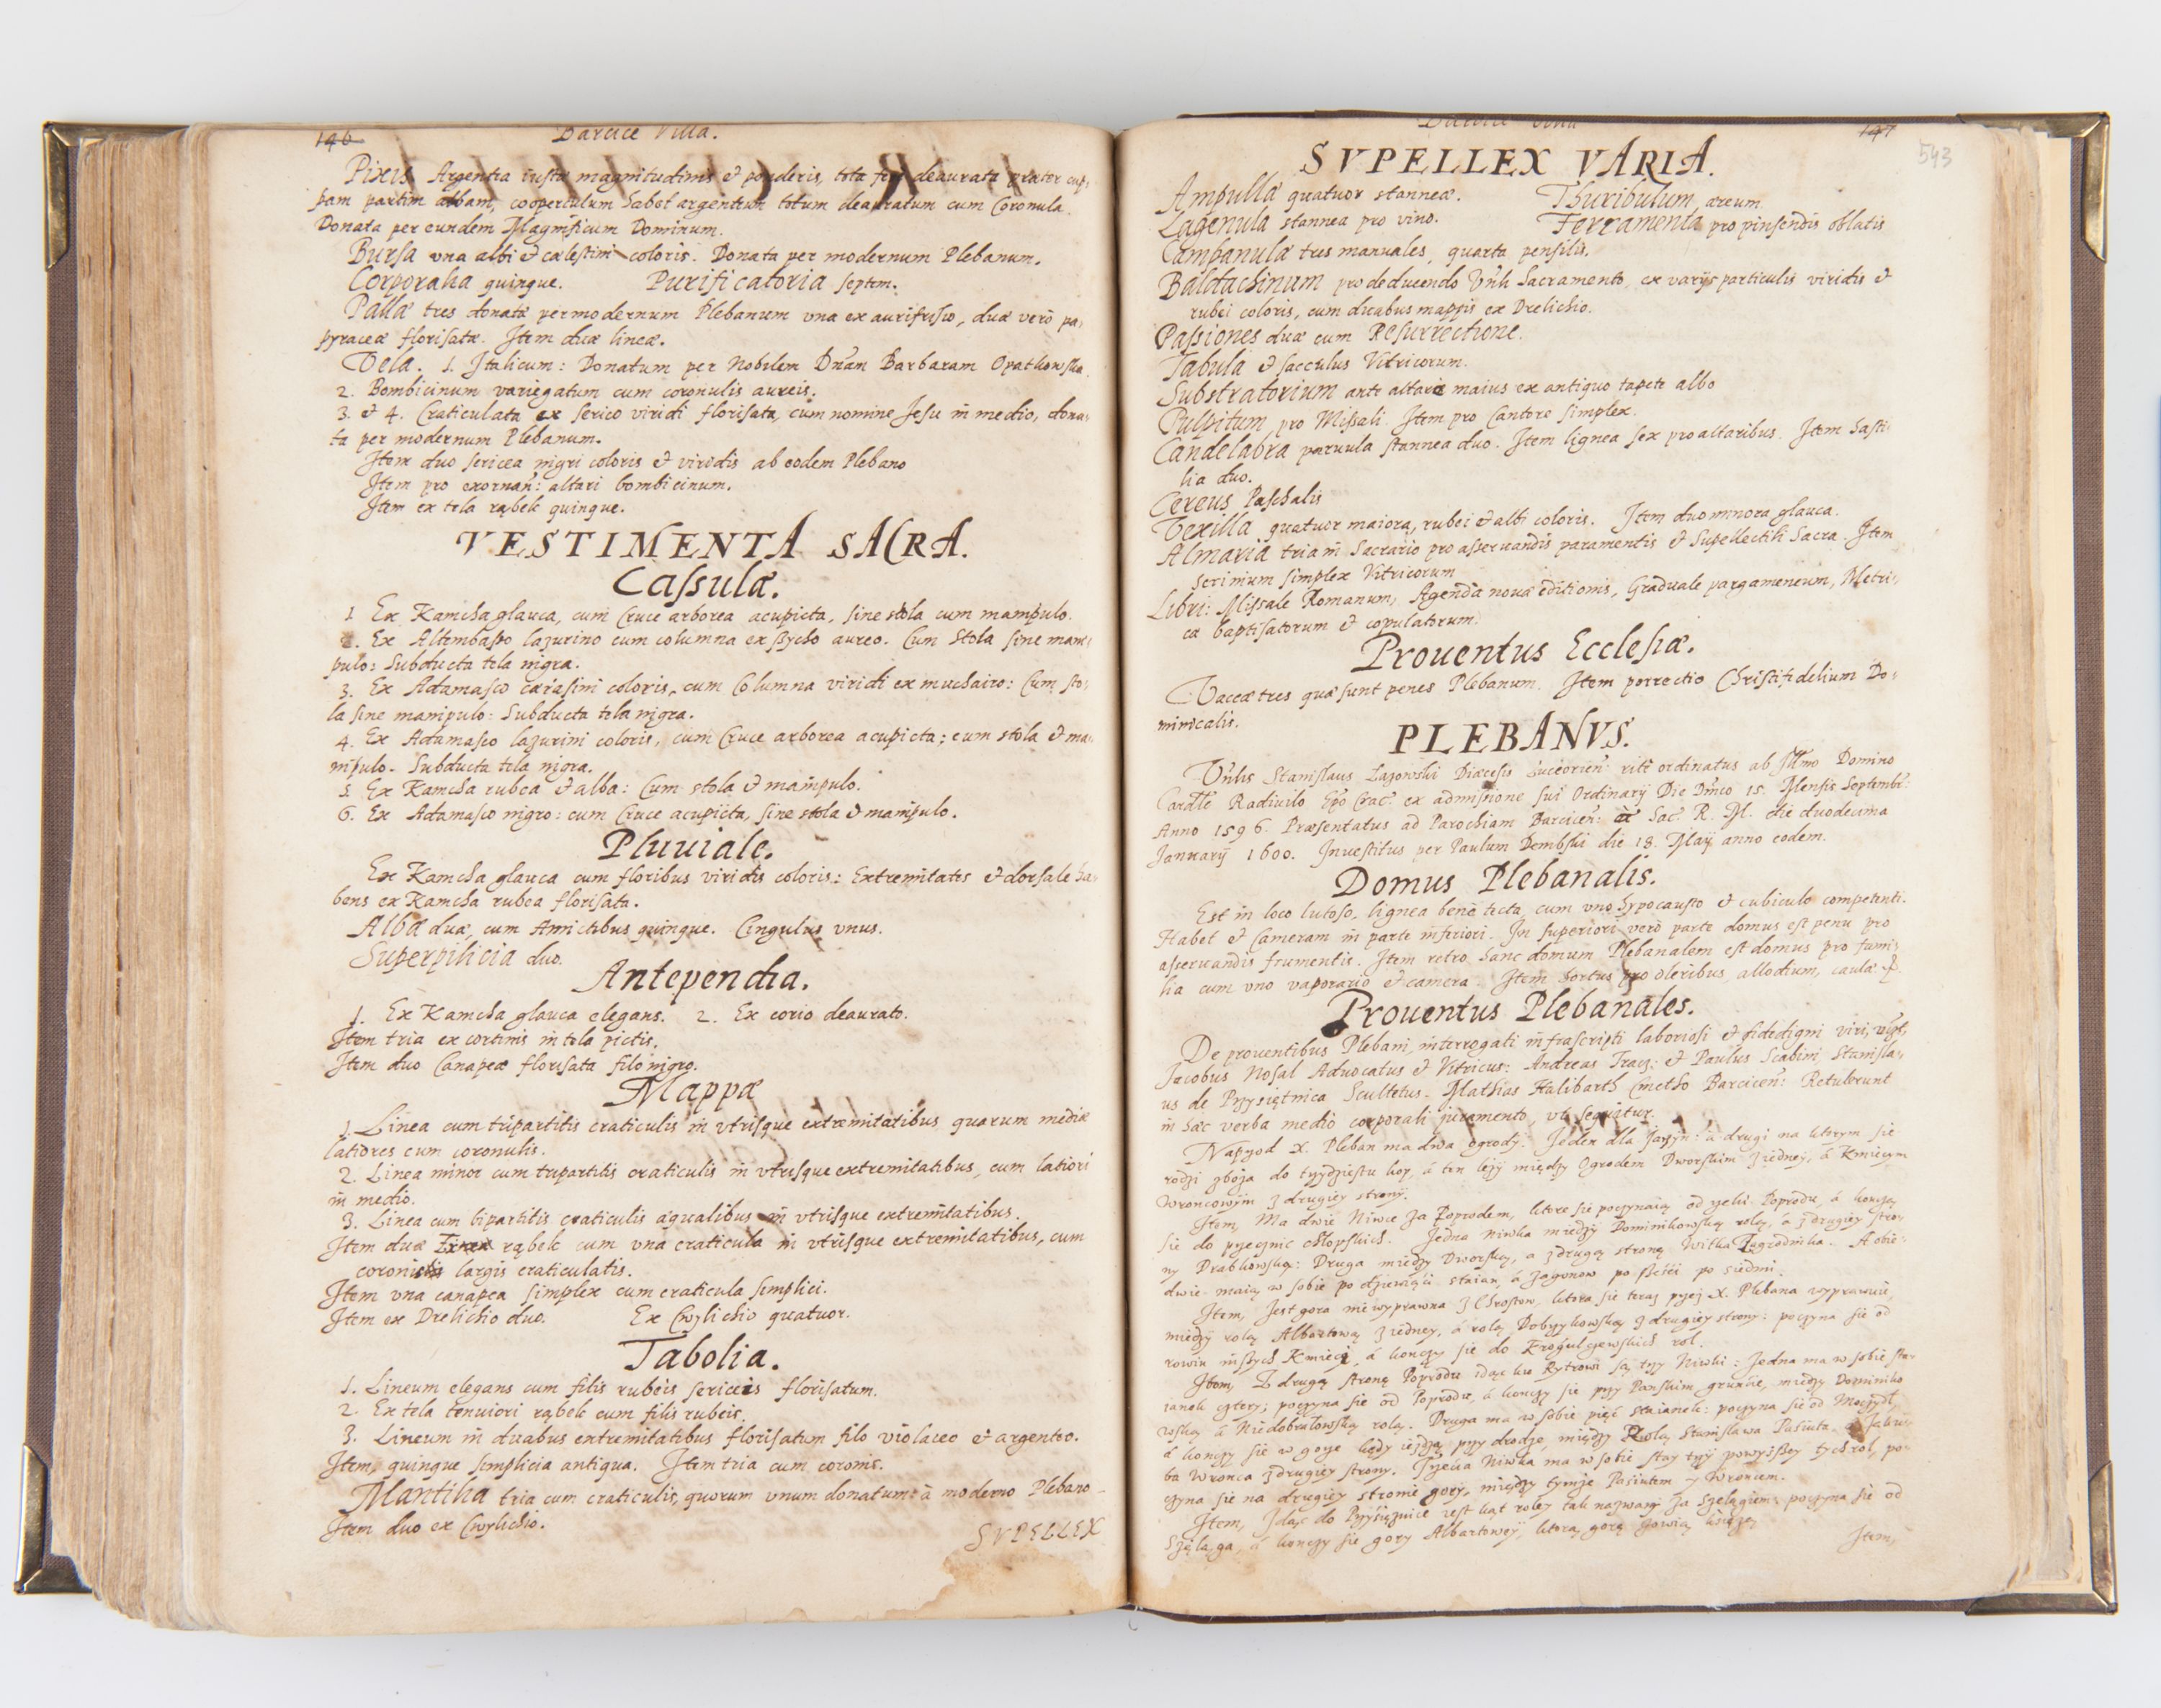 146 Barcice Villa.
Pixis Argentea iustae magnitudinis et ponderis, tota deaurata praeter cup-
pam partim albam, cooperculum habet argenteum totum deauratum cum Coronula.
Donata per eundem Magnificum Dominum.
Bursa vna albi et caelestini coloris. Donata per modernum Plebanum.
Corporalia quinque. Purificatoria septem.
Pallae tres donatae per modernum Plebanum vna ex aurifrisio, duae vero pa-
pyraceae florisatae. Item duae lineae.
Vela. 1. Italicum: Donatum per Nobilem Dnam Barbaram Opatkowska.
2. Bombicinum variegatum cum coronulis aureis.
3. et 4. Craticulata ex serico viridi florisata, cum nomine Jesu in medio, dona-
ta per modernum Plebanum.
Item duo sericea nigri coloris et viridis ab eodem Plebano
Item pro exornan: altari bombicinum.
Item ex tela rąbek quinque.
VESTIMENTA SACRA.
Cassulae.
1 Ex Kamcha glauca, cum Cruce arborea acupicta, sine stola cum manipulo.
2. Ex Altembasso lazurino cum columna ex sżycho aureo. Cum Stola sine mani-
pulo: Subducta tela nigra.
3. Ex Adamasco carasini coloris, cum Columna viridi ex muchairo: Cum sto-
la sine manipulo: Subducta tela nigra.
4. Ex Adamasco lazurini coloris, cum Cruce arborea acupicta; cum stola et ma-
nipulo. Subducta tela nigra.
5 Ex Kamcha rubea et alba: Cum stola et manipulo.
6. Ex Adamasco nigro: cum Cruce acupicta, sine stola et manipulo.
Pluuiale.
Ex Kamcha glauca cum floribus viridis coloris: Extremitates et dorsale ha-
bens ex Kamcha rubea florisata.
Albae duae, cum Amictibus quinque. Cingulus vnus.
Superpilicia duo.
Antependia.
1. Ex Kamcha glauca elegans. 2. Ex corio deaurato.
Item tria ex cortinis in tela pictis.
Item duo Canapea florisata filo nigro.
Mappae
1 Linea cum tripartitis craticulis in vtrisque extremitatibus quarum mediae
latiores cum coronulis.
2. Linea minor cum tripartitis craticulis in vtrisque extremitatibus, cum latiori
in medio.
3. Linea cum bipartitis craticulis aequalibus in vtrisque extremitatibus.
Item duae rąbek cum vna craticula in vtrisque extremitatibus, cum
coronis largis craticulatis.
Item vna canapea simplex cum craticula simplici.
Item ex Drelichio duo. Ex Cwylichio quatuor.
Tabolia.
1. Lineum elegans cum filis rubeis sericeis florisatum.
2. Ex tela tenuiori rąbek cum filis rubeis.
3. Lineum in duabus extremitatibus florisatum filo violaceo et argenteo.
Item, quinque simplicia antiqua. Item tria cum coronis.
Mantilia tria cum craticulis, quorum vnum donatum à moderno Plebano
Item duo ex Cwylichio.
SVPELLEX
147
543
SVPELLEX VARIA.
Ampullae quatuor stanneae. Thuribulum, areum
Lagenula stannea pro vino. Ferramenta pro pinsendis oblatis
Campanulae tres manuales, quarta pensilis.
Baldachinum pro deducendo Vnli Sacramento, ex varijs particulis viridis et
rubei coloris, cum duabus mappis ex Drelichio.
Passiones duae cum Resurrectione.
Tabula et sacculus Vitricorum.
Substratorium ante altare maius ex antiquo tapete albo
Pulpitum pro Missali. Item pro Cantore simplex.
Candelabra paruula stannea duo. Item lignea sex pro altaribus. Item hasti-
lia duo.
Cereus Paschalis
Vexilla quatuor maiora, rubei et albi coloris. Item duo minora glauca.
Almaria tria in Sacrario pro asseruandis paramentis et Supellectili Sacra. Item
scrinium simplex Vitricorum
Libri: Missale Romanum, Agenda nouae editionis, Graduale pargameneum, Metri-
ca baptisatorum et copulatorum.
Prouentus Ecclesiae.
Vaccae tres quae sunt penes Plebanum. Item porrectio Christifidelium Do-
minicalis.
PLEBANVS.
Vnlis Stanislaus Łazowski Diaecesis Luceorien: rite ordinatus ab Illmo Domino
Cardle Radiuilo Epo Crac: ex admissione sui Ordinarij Die Dnico 15. Mensis Septembr:
Anno 1596. Praesentatus ad Parochiam Barcicen: Sac: R. M. die duodecima
Januarij 1600. Inuestitus per Paulum Dembski die 18. Maij anno eodem.
Domus Plebanalis.
Est in loco lutoso, lignea bene tecta, cum vno hypocausto et cubiculo competenti.
Habet et Cameram in parte inferiori. In superiori vero parte domus est penu pro
asseruandis frumentis. Item retro hanc domum Plebanalem est domus pro fami-
lia cum vno vaporario et camera. Item hortus pro oleribus allodium, caulae &.
Prouentus Plebanales.
De prouentibus Plebani, interrogati infrascripti laboriosi et fidedigni viri,
Jacobus Nosal Aduocatus et Vitricus: Andreas Tracz: et Paulus Scabini Stanisla-
us de Przysiętnica Scultetus. Mathias Halibarth Cmetho Barcicen: Retulerunt
in haec verba medio corporali juramento, vt sequitur.
Naprzod X. Pleban ma dwa ogrody. Jeden dla Jarzyn: á drugi na ktorym sie
rodzi zboża do trzydziestu kop, á ten leży między Ogrodem Dworskim z iedney, á Kmiecym
Wroncowym z drugiey strony.
Item, Ma dwie Niwce za Popradem, ktore sie poczynaią od Popradu, á kończą
sie do pszecznic chłopskich. Jedna niwka miedzy Dominikowską rolą, á z drugiey stro-
ny Drabkowską: Druga miedzy Dworską, a z drugą stroną Witka Zagrodnika. A obie-
dwie maią w sobie po dziewiąci staian, á zagonow po sześći po siedmi.
Item, Jest gora niewyprawna z Chrostow, ktora sie teraz przez X. Plebana wyprawuie,
miedzy rolą Albartową z iedney, á rolą Dobrzykowską z drugiey strony: poczyna sie od
rowiu inszych Kmieci, á konczy sie do Frogulczewskich rol.
Item, Z drugą stronę Popradu idąc ku Rytrowi są trzy Niwki: Jedna ma w sobie sta-
ianek cztery; poczyna sie od Popradu, á konczy sie przy Panskim grunćie, miedzy Dominiko
wską á Niedobrutowską rolą. Druga ma w sobie pięć staianek: poczyna sie od
á konczy sie w gorze kędy ieżdżą przy drodze, między Rolą Stanisława Pasiuta, Jaku-
ba Wronca z drugiey strony. Trzecia Niwka ma w sobie stay trzy powyższey tych rol, po-
czyna sie na drugiey stronie gory, między tymże Pasiutem y Wroncem.
Item, Idąc do Przysiętnice iest kąt roley tak nazwany za Szelągiem: poczyna sie od
Szeląga, á konczy sie gory Albartowey, ktorą gorę zowią
Item,